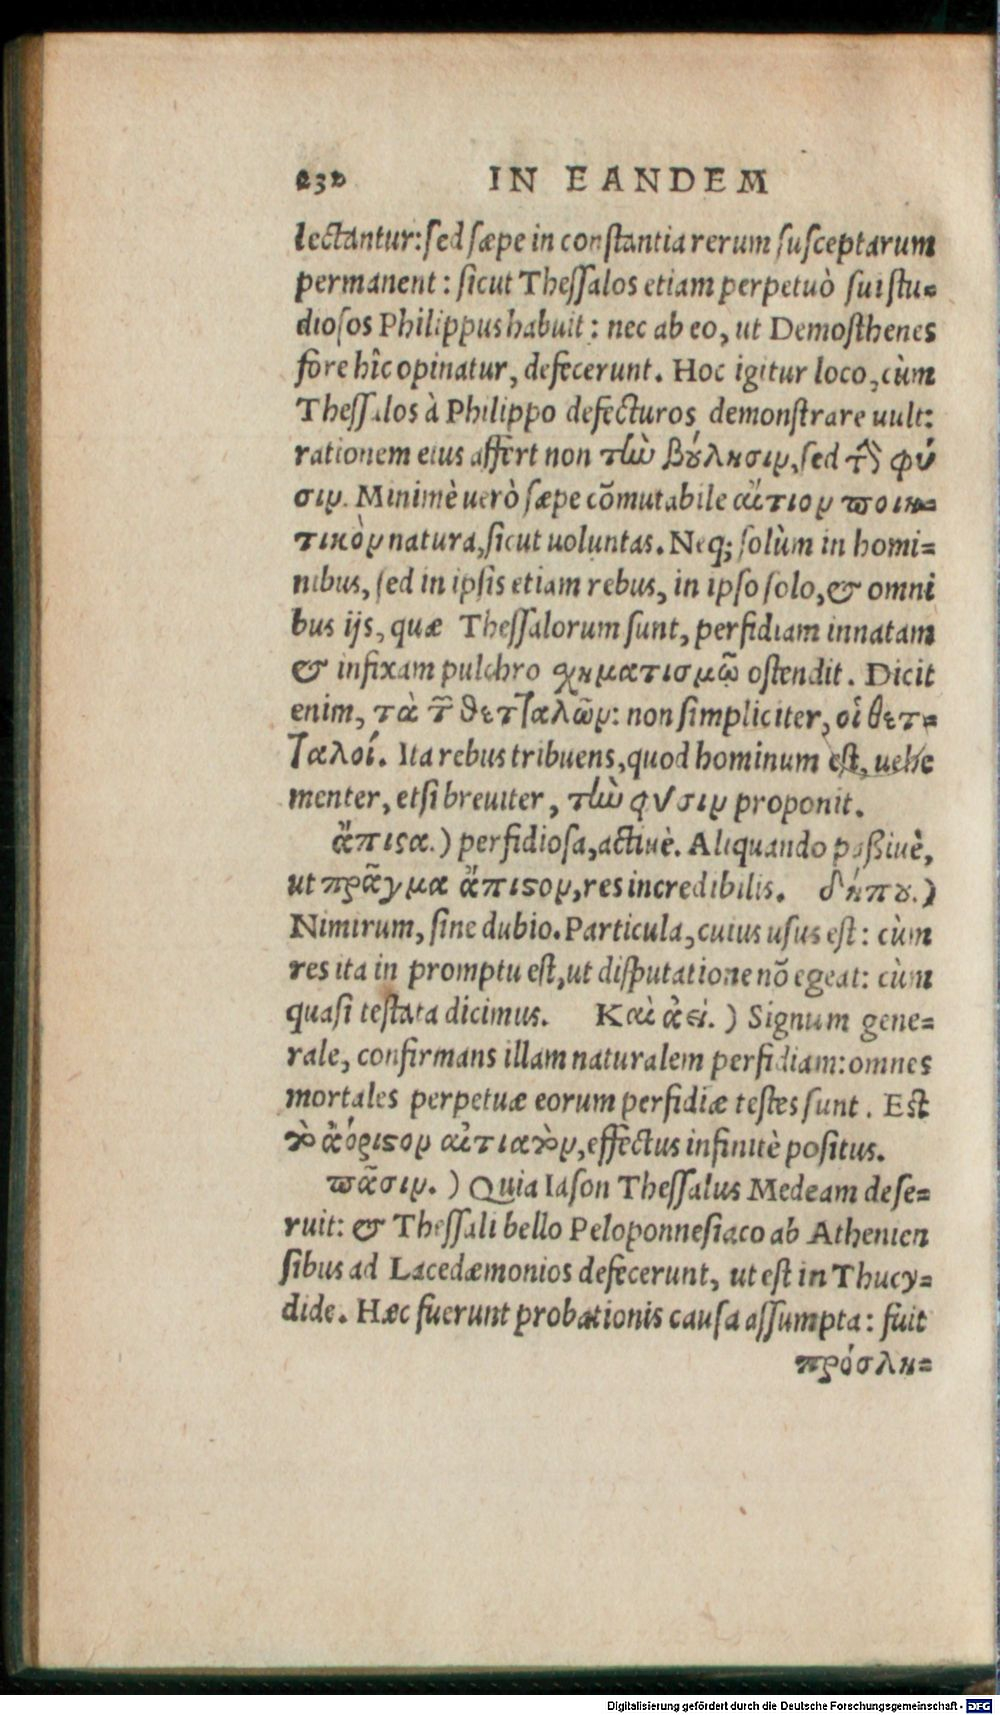 232 IN EANDEM
lectantur: sed sæpe in constantia rerum susceptarum
permanent: sicut Thessalos etiam perpetuò sui stu=
diosos Philippus habuit: nec ab eo, ut Demosthenes
fore hîc opinatur, defecerunt. Hoc igitur loco, cùm
Thessalos à Philippo defecturos demonstrare uult:
rationem eius affert non τὼ βȣ́λησιν, sed τ̀ φύ
σιν. Minimè uerò sæpe cōmutabile αἴτιον ποιη=
τικὸν natura, sicut uoluntas. Neq; solùm in homi=
nibus, sed in ipsis etiam rebus, in ipso solo, & omni
bus ijs, quæ Thessalorum sunt, perfidiam innatam
& infixam pulchro χηματισμῶ ostendit. Dicit
enim, τὰ τ̃ θετταλῶν: non simpliciter, οἱ θετ=
ταλοί. Ita rebus tribuens, quod hominum est, uehe
menter, etsi breuiter, τὼ φύσιν proponit.
ἄπιϛα.) perfidiosa, actiuè. Aliquando paßiuè,
ut πρᾶγμα ἄπιϛον, res incredibilis. δήπȣ.)
Nimirum, sine dubio. Particula, cuius usus est: cùm
res ita in promptu est, ut disputatione nō egeat: cùm
quasi testata dicimus. Καὶ ἀεί.) Signum gene=
rale, confirmans illam naturalem perfidiam: omnes
mortales perpetuæ eorum perfidiæ testes sunt. Est
ἀόριϛον αἰτιατὸν, effectus infinitè positus.
πᾶσιν.) Quia Iason Thessalus Medeam dese=
ruit: & Thessali bello Peloponnesiaco ab Athenien
sibus ad Lacedæmonios defecerunt, ut est in Thucy=
dide. Hæc fuerunt probationis causa assumpta: fuit
πρόσλη=
Digitalisierung gefördert durch die Deutsche Forschungsgemeinschaft - DFG